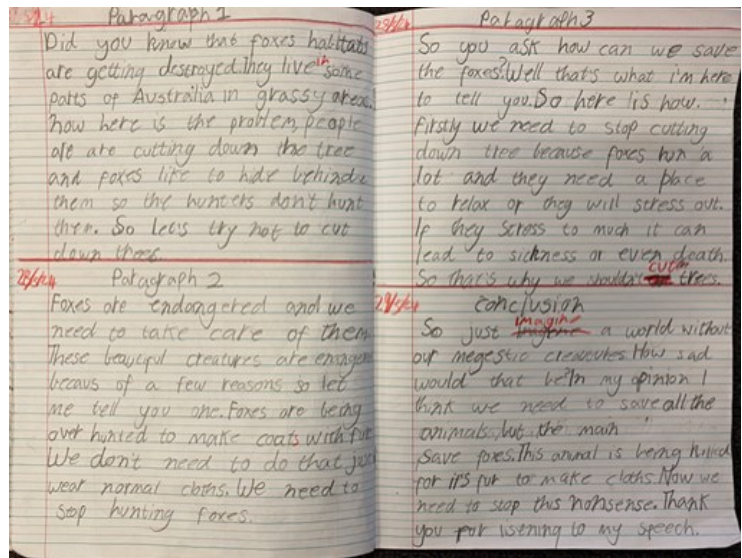 28/5/24 Paragraph 1
Did you know that foxes habitats
are getting destroyed.They live in some
parts of Australia in grassy areas.
now here is the problem, people
are are cutting down the tree
and foxes like to hide behinde
them so the hunters don't hunt
them. So let's try not to cut
down trees.
28/5/24 Paragraph 2
Foxes are endangered and we
need to take care of them
These beautiful creatures are
becaus of a few reasons so let
me tell you one. Foxes are being
over hunted to make coats with fur
We don't need to do that just
wear normal cloths. We need to
stop hunting foxes.
28/5/24 Paragraph 3
So you ask how can we save
the foxes? Well that's what i'm here
to tell you. So here is how.
firstly we need to stop cutting
down tree because foxes run a
lot and they need a place
to relax or they will stress out.
If they stress to much it can
lead to sickness or even death.
So that's why we shouldn't cut trees.
29/5/24 conclusion
So just imagine a world without
our megestic creatures. How sad
would that be? In my opinion I
think we need to save all the
animals, but the main
save foxes. This animal is being killed
for it's fur to make cloths. Now we
need to stop this nonsense. Thank
you for isening to my speech.